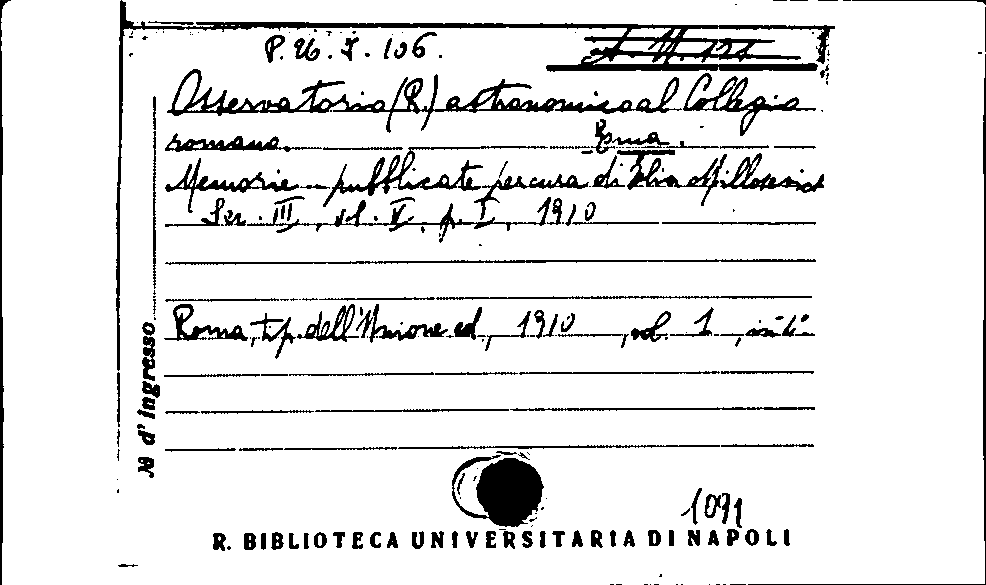 P. U. 7. 106.
Osservatorio (R.) astronomico al Collegio
romano. Roma.
Memorie - pubblicate per cura di Elia Millosevich
Ser. III, vol. V, p. I, 1910
Roma, tip. dell'Unione ed., 1910, vol. 1, in-4°
No d'ingresso
1091
R. BIBLIOTECA UNIVERSITARIA DI NAPOLI